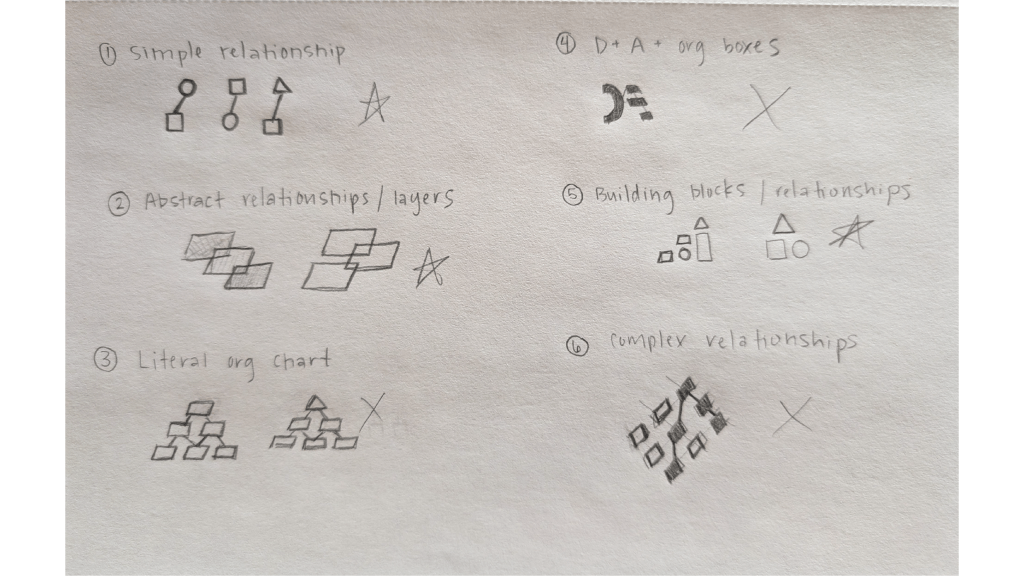 ① Simple relationship
② Abstract relationships / layers
③ Literal org chart
④ D + A + org boxes
⑤ Building blocks / relationships
⑥ Complex relationships